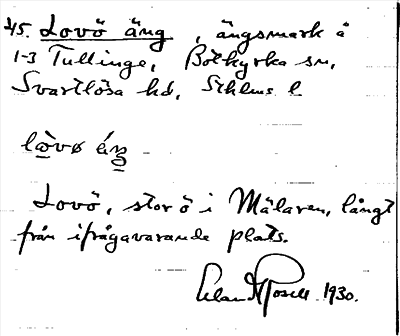 45. Lovö äng, ängsmark å
1-3 Tullinge, Botkyrka sn,
Svartlösa hd, Sthlms l
lòvø áŋ
Lovö, stor ö i Mälaren, långt
från ifrågavarande plats.
Erland Rosell 1930.